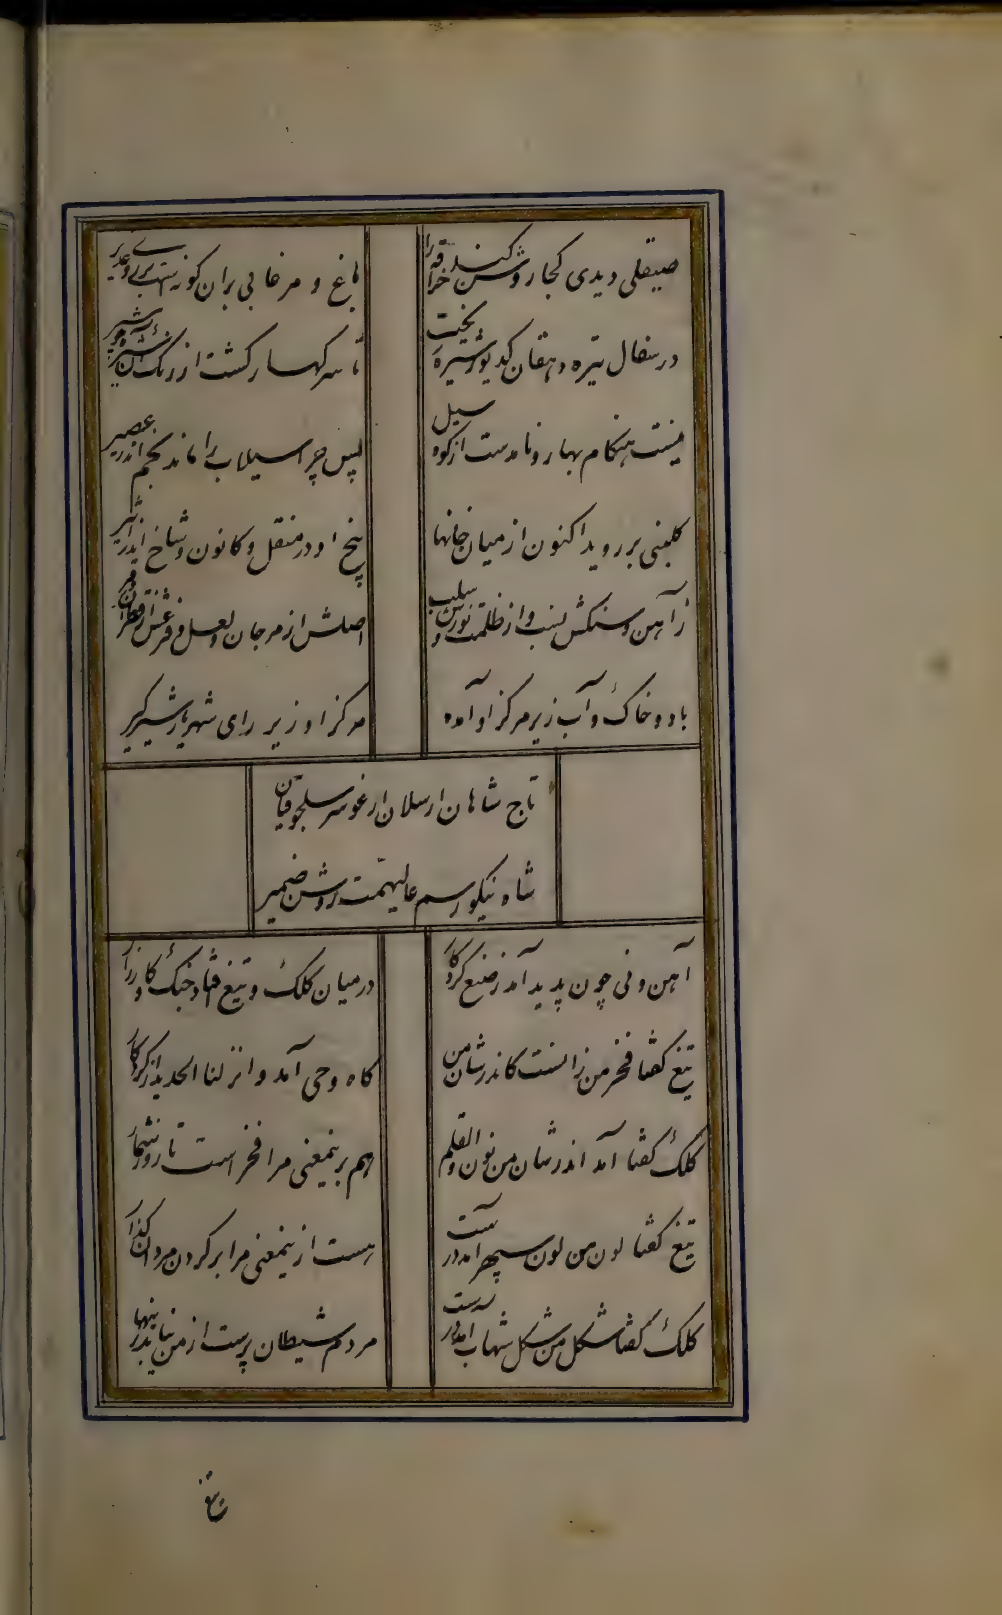 صیقلی دیدی کجا روشن کند خراقه را
ماغ و مرغابی بران کونه
در سفال تیره دهقان کدیور شیره ریخت
تا سر کهسار کشت از رنک آن شیره
نیست هنکام بهار و نامدست از کوه سیل
پس چرا سیلاب را ماند بخم اندر عصیر
کلبنی بر روید اکنون از میان خانها
بیخ او در منقل و کانون و شاخ اندر اثیر
ز آهن و سنکش نسب و از ظلمت و نورش سلب
اصلش از مرجان و لعل و فرعش از قطران و قیر
باد و خاک و آب زیر مرکز او آمده
مرکز او زیر رای شهریار شیرکیر
تاج شاهان ارسلان ارغو سر سلجوقیان
شاه نیکو رسم عالیهمت روشن ضمیر
آهن و نی چون پدید آمد ز صنع کردکار
در میان کلک و تیغ افتاد جنک کارزار
تیغ کفتا فخر من زانست کاندر شان من
کاه وحی آمد و انزلنا الحدید از کردکار
کلک کفتا آمد اندر شان من نون و القلم
هم برینمعنی مرا فخر است تا روز شمار
تیغ کفتا لون من لون سپهر آمد درست
هست ازینمعنی مرا بر کردن مردان کذار
کلک کفتا شکل من شکل شهاب آمد درست
مردم شیطان پرست از من نیابد زینهار